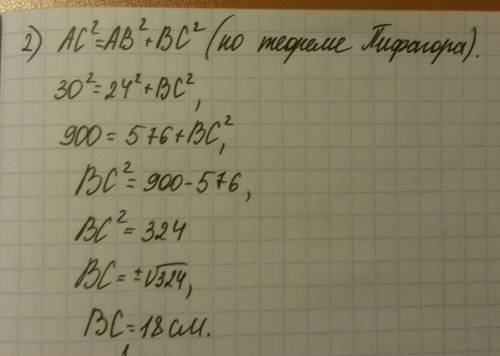 2) AC²=AB²+BC² (по теореме Пифагора).
30²=24²+BC²,
900=576+BC²,
BC²=900-576,
BC²=324
BC=±√324,
BC=18 см.